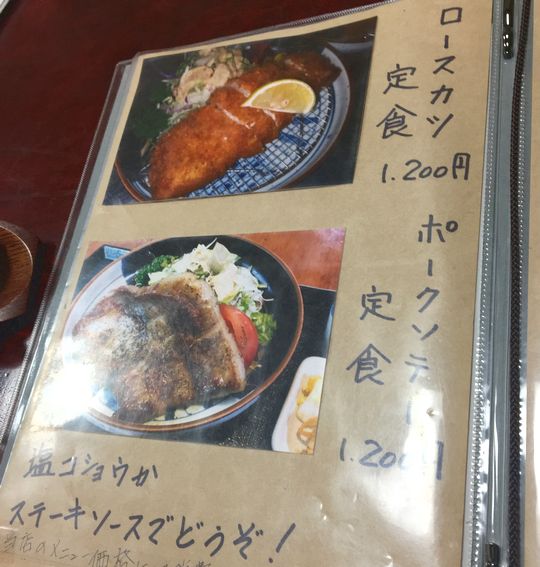 ロースカツ
定食
1.200円
ポークソテー
定食
1.200円
塩コショウか
ステーキソースでどうぞ!
当店のメニュー価格に